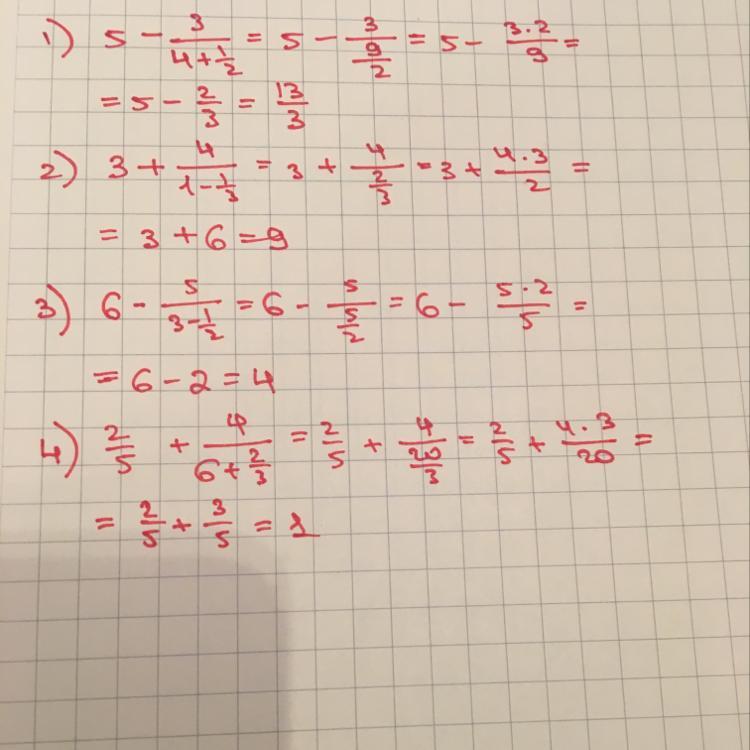 1) 5 - 3/(4+1/2) = 5 - 3/(9/2) = 5 - (3·2)/9 =
= 5 - 2/3 = 13/3
2) 3 + 4/(1-1/3) = 3 + 4/(2/3) = 3 + (4·3)/2 =
= 3 + 6 = 9
3) 6 - 5/(3-1/2) = 6 - 5/(5/2) = 6 - (5·2)/5 =
= 6 - 2 = 4
4) 2/5 + 4/(6+2/3) = 2/5 + 4/(20/3) = 2/5 + (4·3)/20 =
= 2/5 + 3/5 = 1